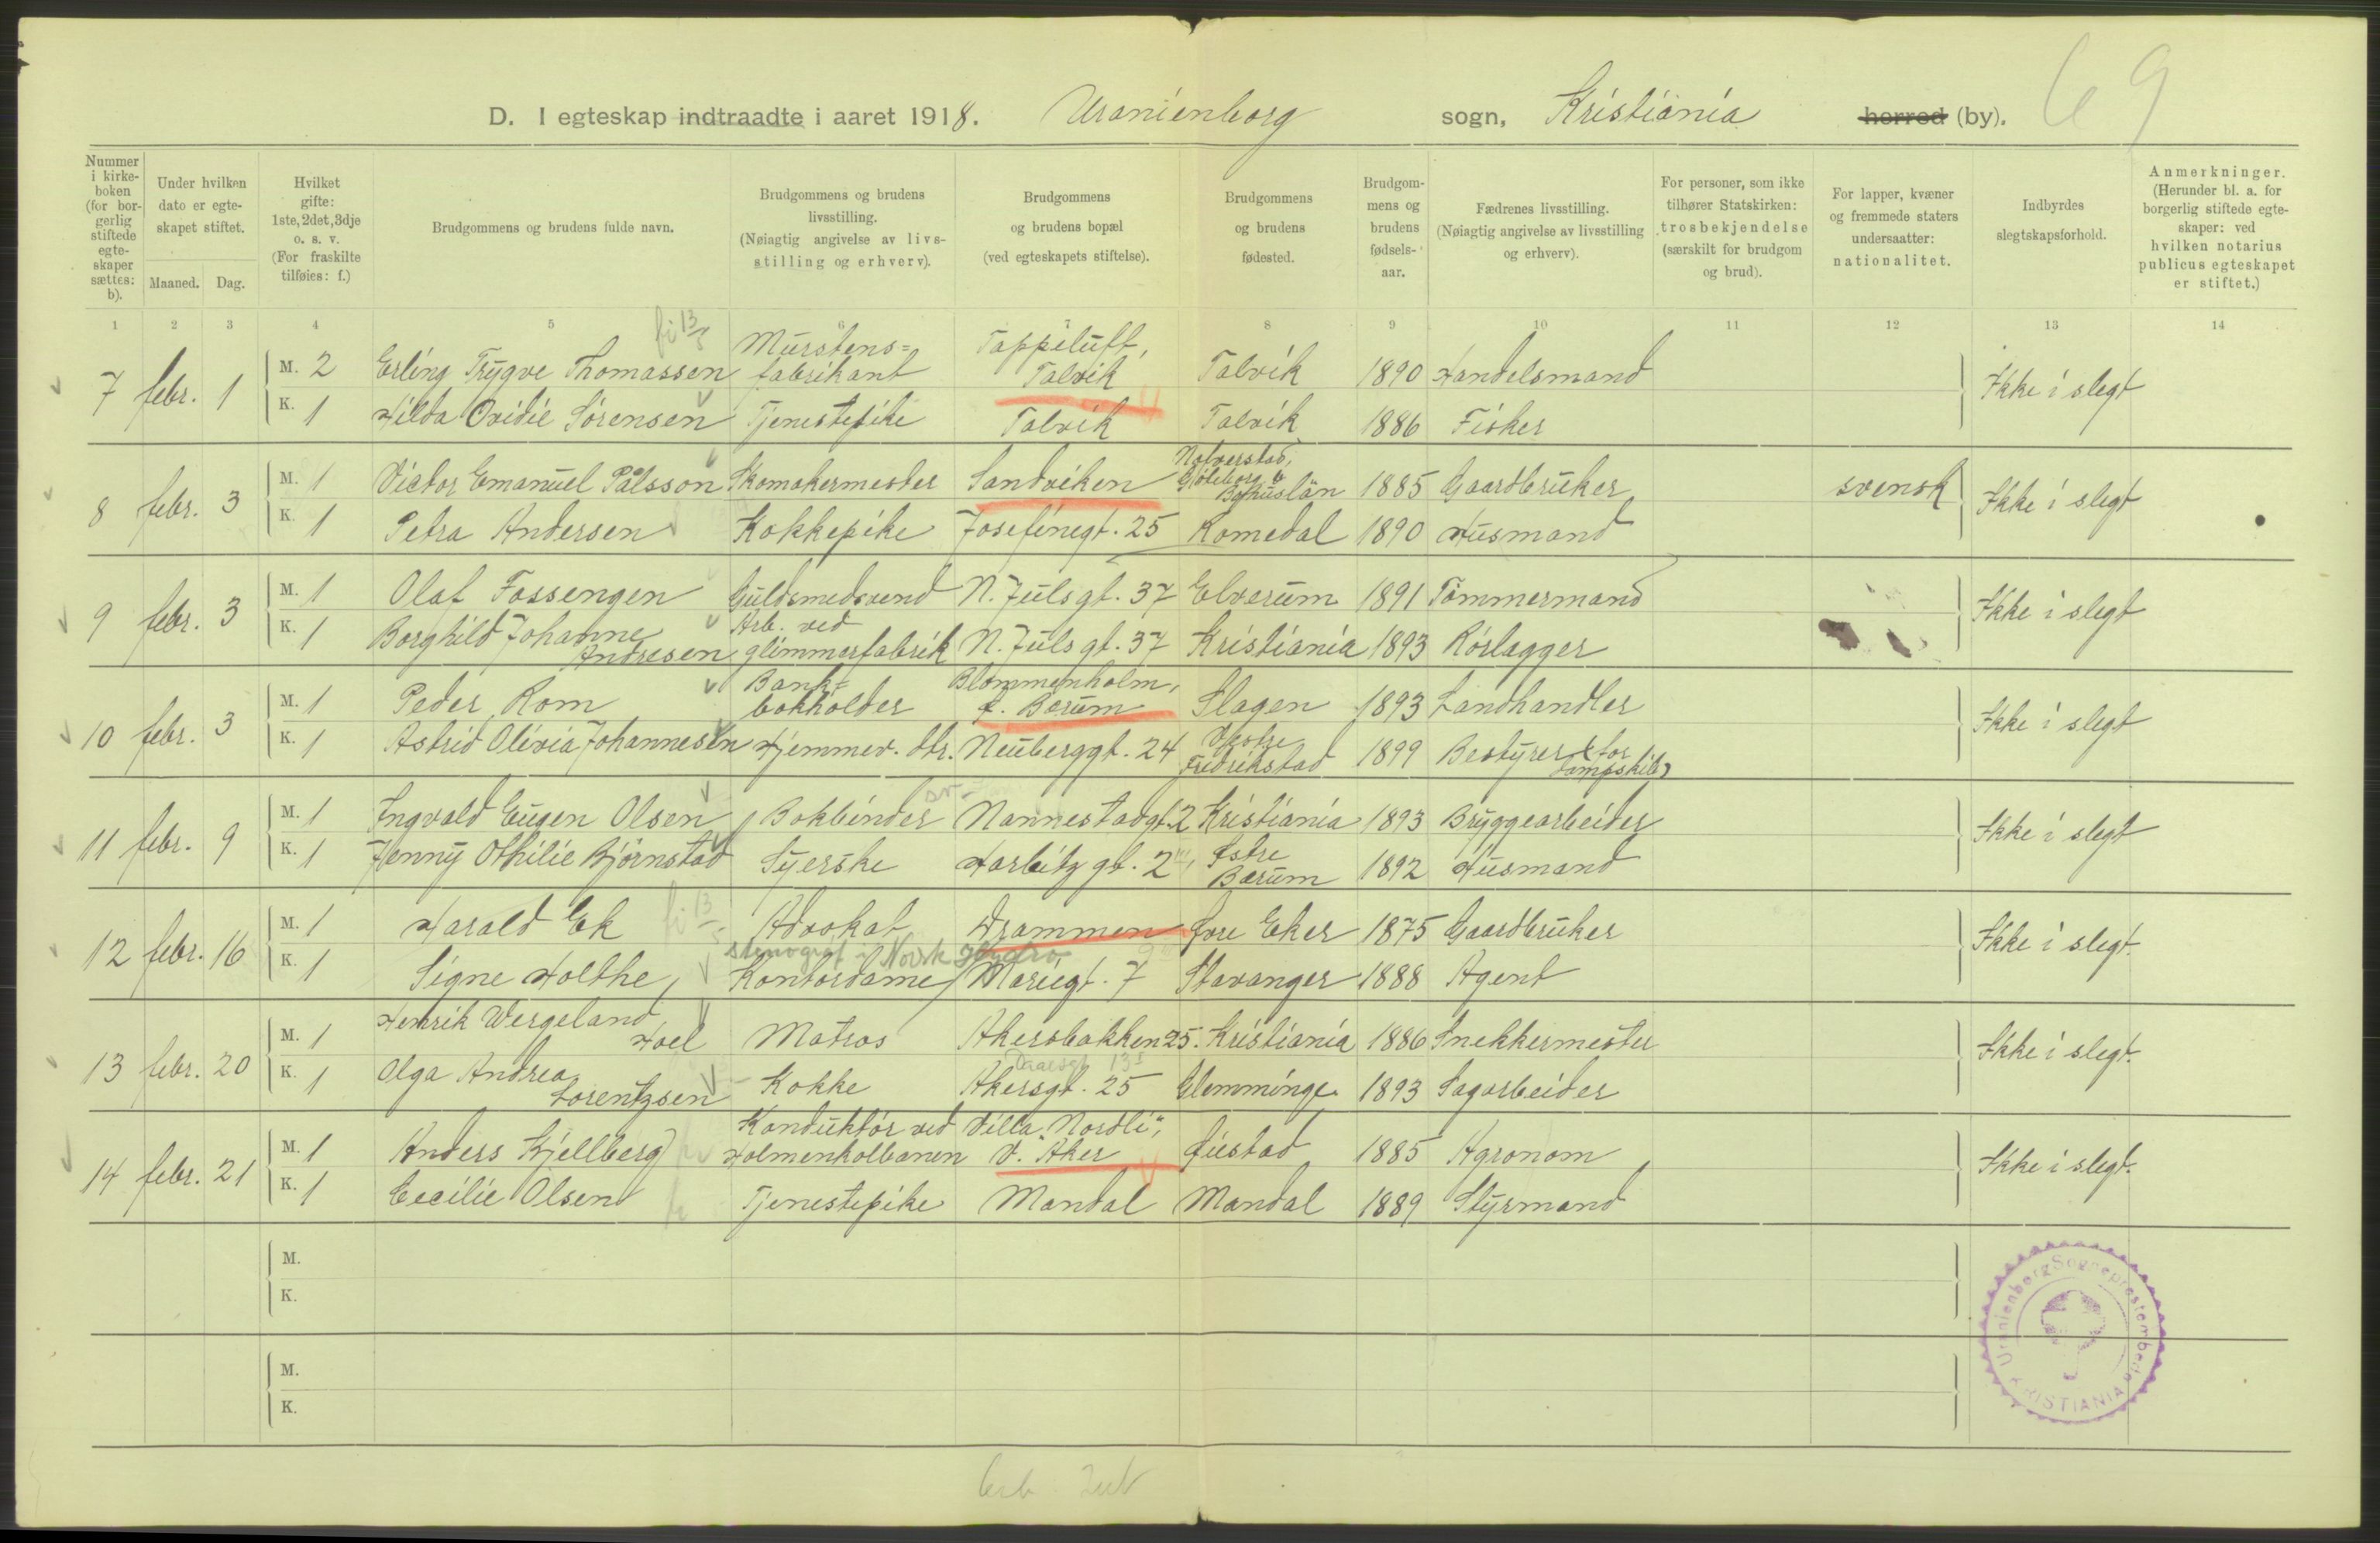 69
D. I egteskap indtraadte i aaret 1918. Uranienborg sogn, Kristiania herred (by).
Nummer i kirke-boken (for bor-gerlig stiftede egte-skaper sættes: b).
Under hvilken dato er egte-skapet stiftet.
Maaned. Dag.
Hvilket gifte: 1ste, 2det, 3dje o. s. v. (For fraskilte tilføies: f.)
Brudgommens og brudens fulde navn.
Brudgommens og brudens livsstilling. (Nøiagtig angivelse av livs-stilling og erhverv).
Brudgommens og brudens bopæl (ved egteskapets stiftelse).
Brudgommens og brudens fødested.
Brudgom-mens og brudens fødsels-aar.
Fædrenes livsstilling. (Nøiagtig angivelse av livsstilling og erhverv).
For personer, som ikke tilhører Statskirken: trosbekjendelse (særskilt for brudgom og brud).
For lapper, kvæner og fremmede staters undersaatter: nationalitet.
Indbyrdes slegtskapsforhold.
Anmerkninger. (Herunder bl. a. for borgerlig stiftede egte-skaper: ved hvilken notarius publicus egteskapet er stiftet.)
1 2 3 4 5 6 7 8 9 10 11 12 13 14
7 febr. 1 M. 2 Erling Trygve Thomassen Murstens= fabrikant Tappeluft, Talvik Talvik 1890 Handelsmand Ikke i slegt
K. 1 Hilda Ovidie Sørensen Tjenestepike Talvik Talvik 1886 Fisker
8 febr. 3 M. 1 Victor Emanuel Pålsson Skomakermester Sandviken Göteborg Bohuslän 1885 Gaardbruker svensk Ikke i slegt
K. 1 Petra Andersen Kokkepike Josefinegt. 25 Romedal 1890 Husmand
9 febr. 3 M. 1 Olaf Fossengen Guldsmedsvend N. Juls gt. 37 Elverum 1891 Tømmermand Ikke i slegt
K. 1 Borghild Johanne Andresen Arb. ved glimmerfabrik N. Juls gt. 37 Kristiania 1893 Rørlægger
10 febr. 3 M. 1 Peder Rom Bank= bokholder Blommenholm, Ø. Bærum Slagen 1893 Landhandler Ikke i slegt
K. 1 Astrid Olivia Johannesen Hjemmev. dtr. Neuberggt. 24 Vestre Fredrikstad 1899 Bestyrer for dampskib
11 febr. 9 M. 1 Ingvald Eugen Olsen Bokbinder Nannestadgt. 2 Kristiania 1893 Bryggearbeider Ikke i slegt
K. 1 Jenny Othilie Bjørnstad Syerske Harbitz gt. 2 Østre Bærum 1892 Husmand
12 febr. 16 M. 1 Harald Ek Advokat Drammen Øvre Eker 1875 Gaardbruker Ikke i slegt.
stenograf i Norsk Hydro
K. 1 Signe Holthe Kontordame Mariegt. 7 Stavanger 1888 Agent
13 febr. 20 M. 1 Henrik Wergeland Hoel Matros Akersbakken 25. Kristiania 1886 Snekkermester Ikke i slegt.
K. 1 Olga Andrea Lorentzsen Kokke Akersgt. 25 Glemminge 1893 Sagarbeider
14 febr. 21 M. 1 Anders Kjellberg Konduktør ved Holmenkolbanen Villa "Nordli", V. Aker Øiestad 1885 Agronom Ikke i slegt.
K. 1 Cecilie Olsen Tjenestepike Mandal Mandal 1889 Styrmand
M.
K.
M.
K.
Uranienborg Sogneprestembede
KRISTIANIA